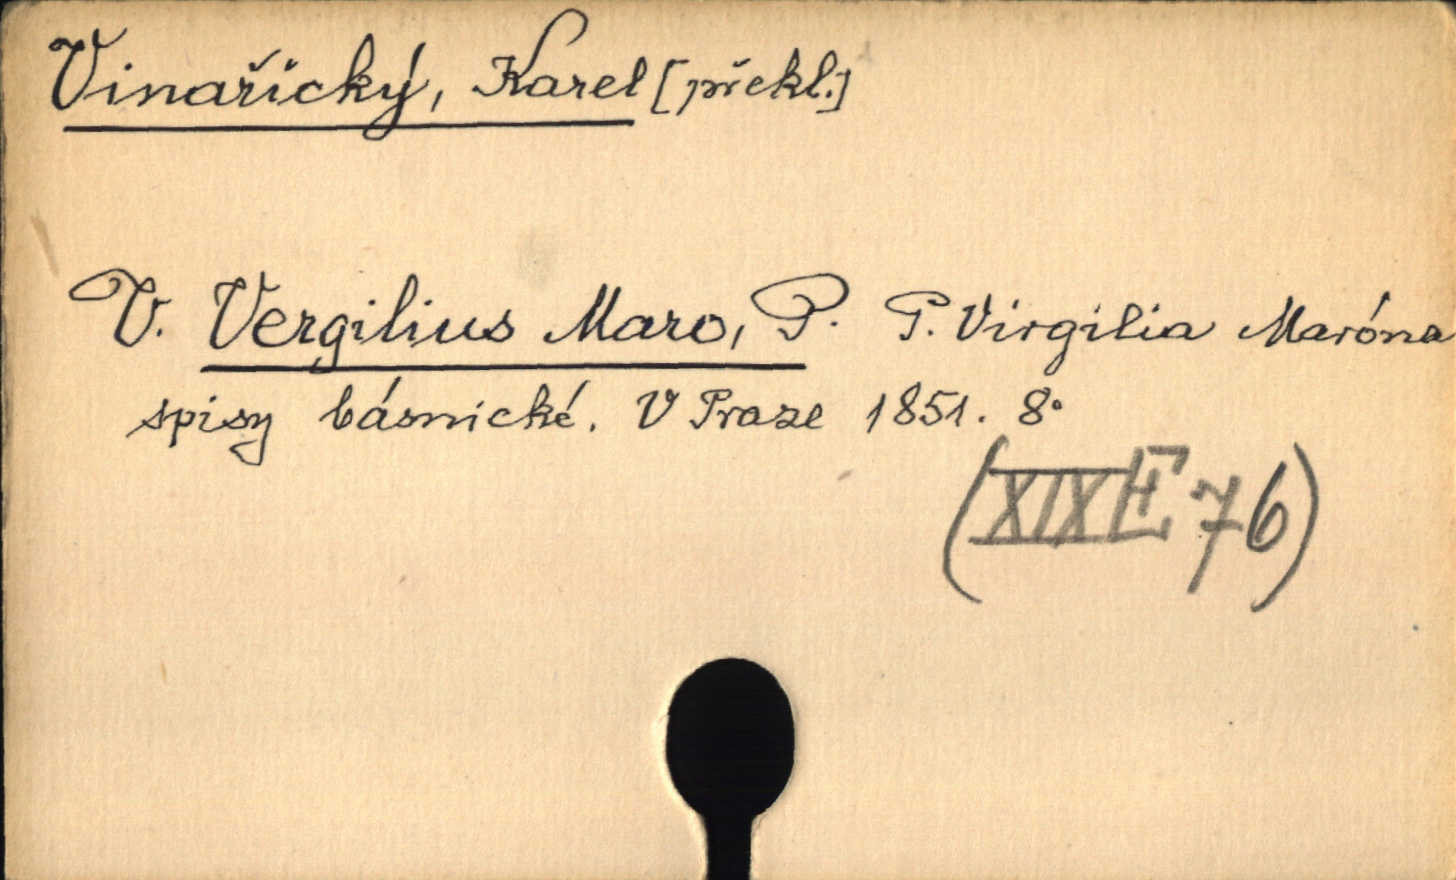 Vinařický, Karel [překl.]
V. Vergilius Maro, P. P. Virgilia Maróna
spisy básnické. V Praze 1851. 8°
(XIX E 76)